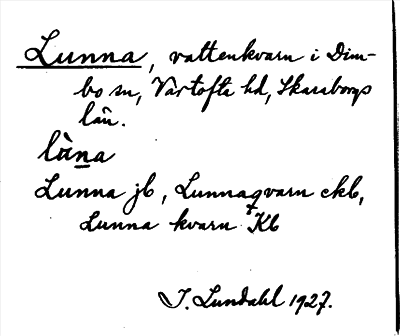 Lunna, vattenkvarn i Dim-
bo sn, Vartofta hd, Skaraborgs
län.
lùna
Lunna jb, Lunnaqvarn ekb,
Lunna kvarn Kb
I. Lundahl 1927.